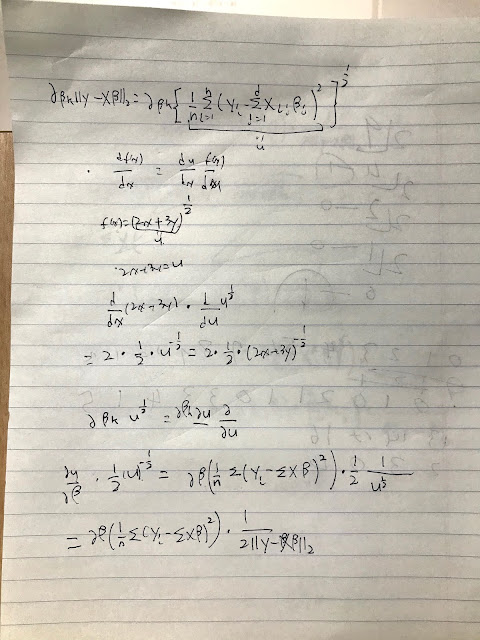 ∂βₖ||Y-Xβ||₂ = ∂βₖ{ 1/n Σⁿᵢ₌₁ (Yᵢ - Σᵈⱼ₌₁ Xᵢⱼ βⱼ)² }^(1/2)
u
· df(x)/dx = du/dx f(x)/du
f(x) = (2x+3y)^(1/2)
u
· 2x+3y = u
d/dx (2x+3y) · d/du u^(1/2)
= 2 · 1/2 · u^(-1/2) = 2 · 1/2 · (2x+3y)^(-1/2)
∂βₖ u^(1/2) = ∂βₖ ∂u ∂/∂u
∂u/∂β · 1/2 (u)^(-1/2) = ∂β(1/n Σ(Yᵢ - ΣXβ)²) · 1/2 1/u^(1/2)
= ∂β(1/n Σ(Yᵢ - ΣXβ)²) · 1/(2||Y-Xβ||₂)